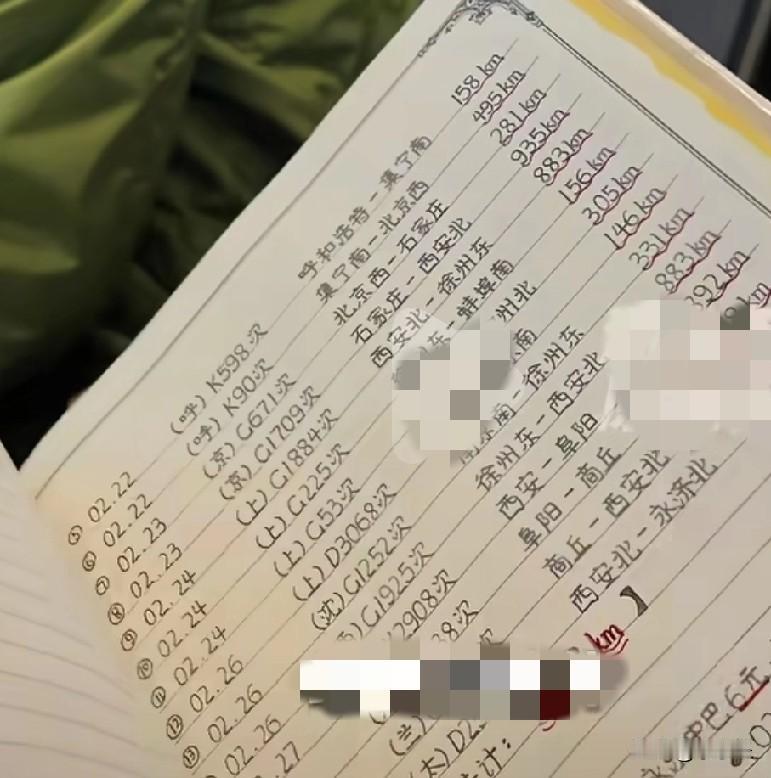 ⑤ 02.22 (呼) K598次 呼和浩特-集宁南 158km
⑥ 02.22 (呼) K90次 集宁南-北京西 495km
⑦ 02.23 (京) G671次 北京西-石家庄 281km
⑧ 02.23 (京) G1709次 石家庄-西安北 935km
⑨ 02.24 (上) G1884次 西安北-徐州东 883km
⑩ 02.24 (上) G225次 东-蚌埠南 156km
⑪ 02.24 (上) G53次 州北 305km
⑫ 02.26 (上) D3068次 南 146km
⑬ 02.26 (沈) G1252次 南-徐州东 331km
02.26 G1925次 徐州东-西安北 883km
27 2908次 西安-阜阳 392km
8次 阜阳-商丘 km
(兰) 次 商丘-西安北
(太) D2 西安北-永济北
计: km】
巴 6元